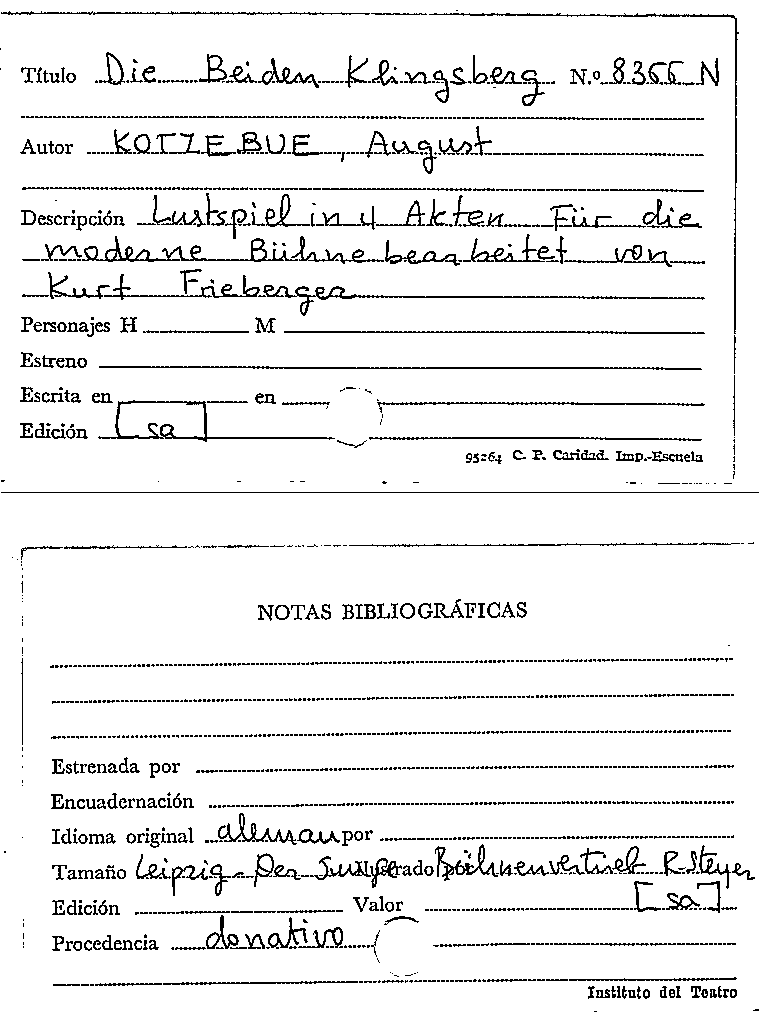 Título Die Beiden Klingsberg N.º 8366 N
Autor KOTZEBUE, August
Descripción Lustspiel in 4 Akten Für die
moderne Bühne bearbeitet von
Kurt Frieberger
Personajes H M
Estreno
Escrita en en
Edición [sa]
95264 C. P. Caridad. Imp.-Escuela
NOTAS BIBLIOGRÁFICAS
Estrenada por
Encuadernación
Idioma original aleman por
Tamaño Leipzig - Der Junge Bühnenvertrieb R. Steyer
Edición Valor [sa]
Procedencia donativo
Instituto del Teatro